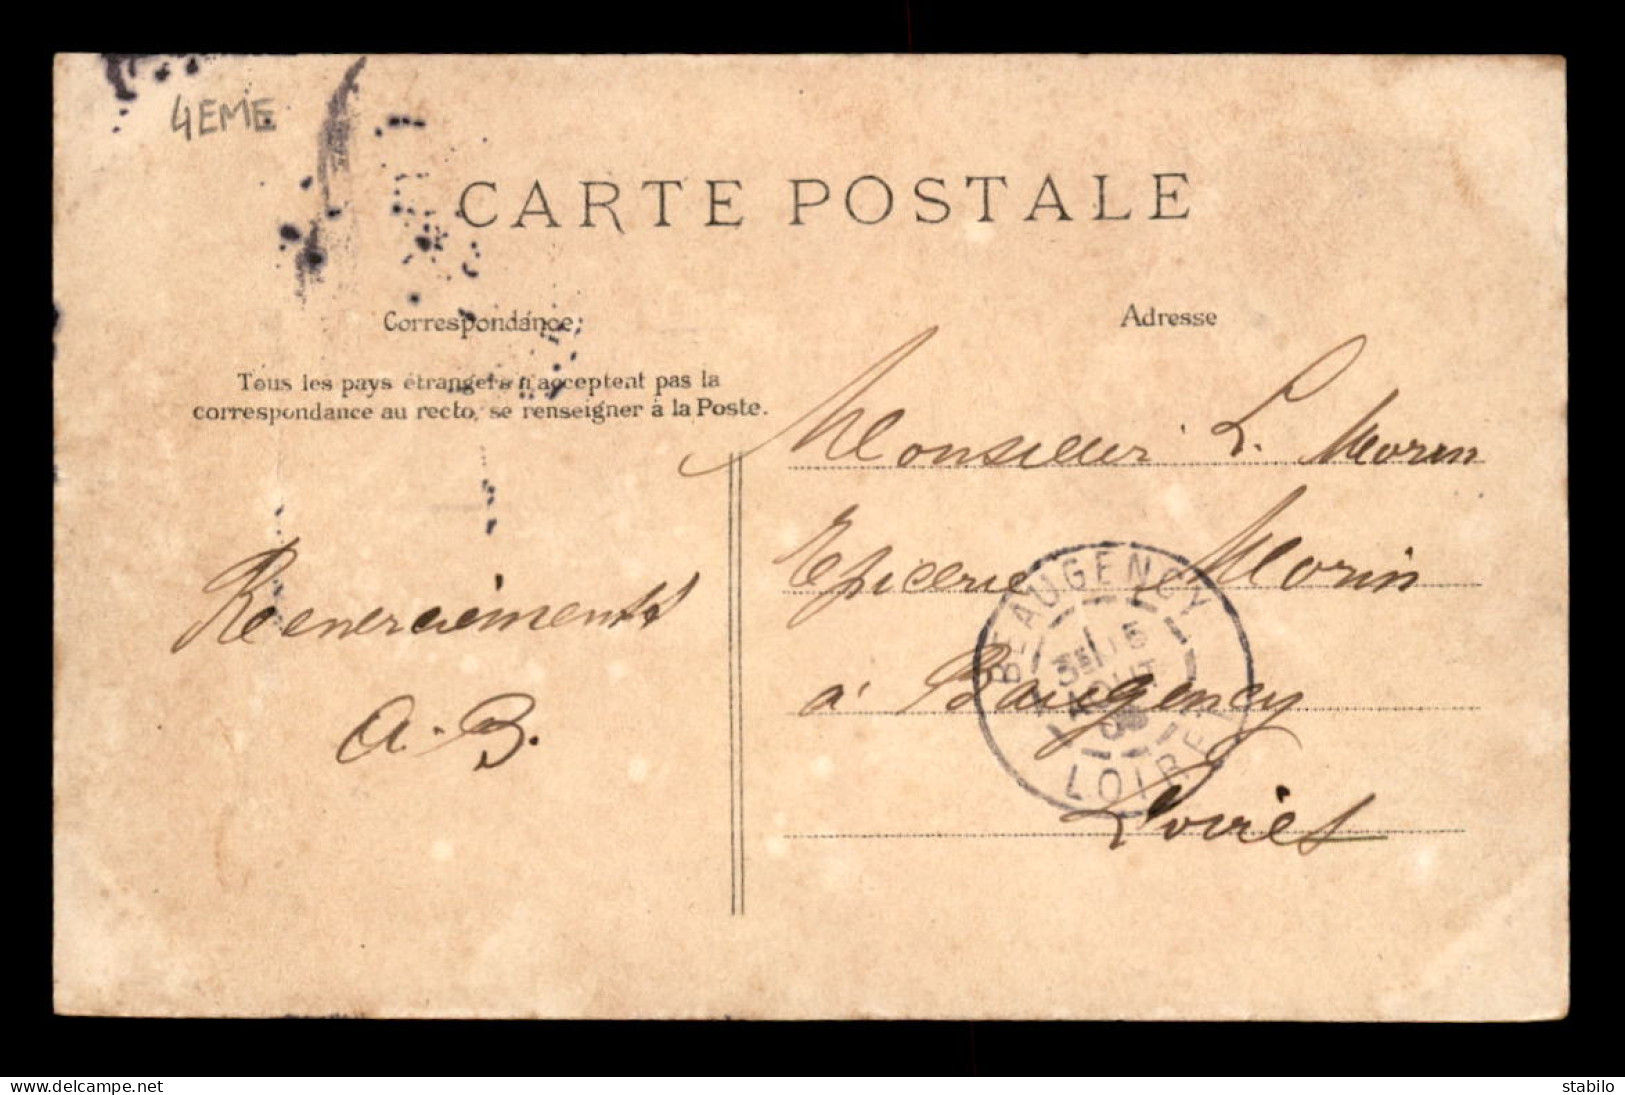 4EME
CARTE POSTALE
Correspondance
Adresse
Tous les pays étrangers n'acceptent pas la
correspondance au recto, se renseigner à la Poste.
Monsieur L. Morin
Epicerie Morin
à Baugency
Loiret
Remerciements
A. B.
BEAUGENCY
3E 15
AOUT
LOIRET
delcampe.net
stabilo